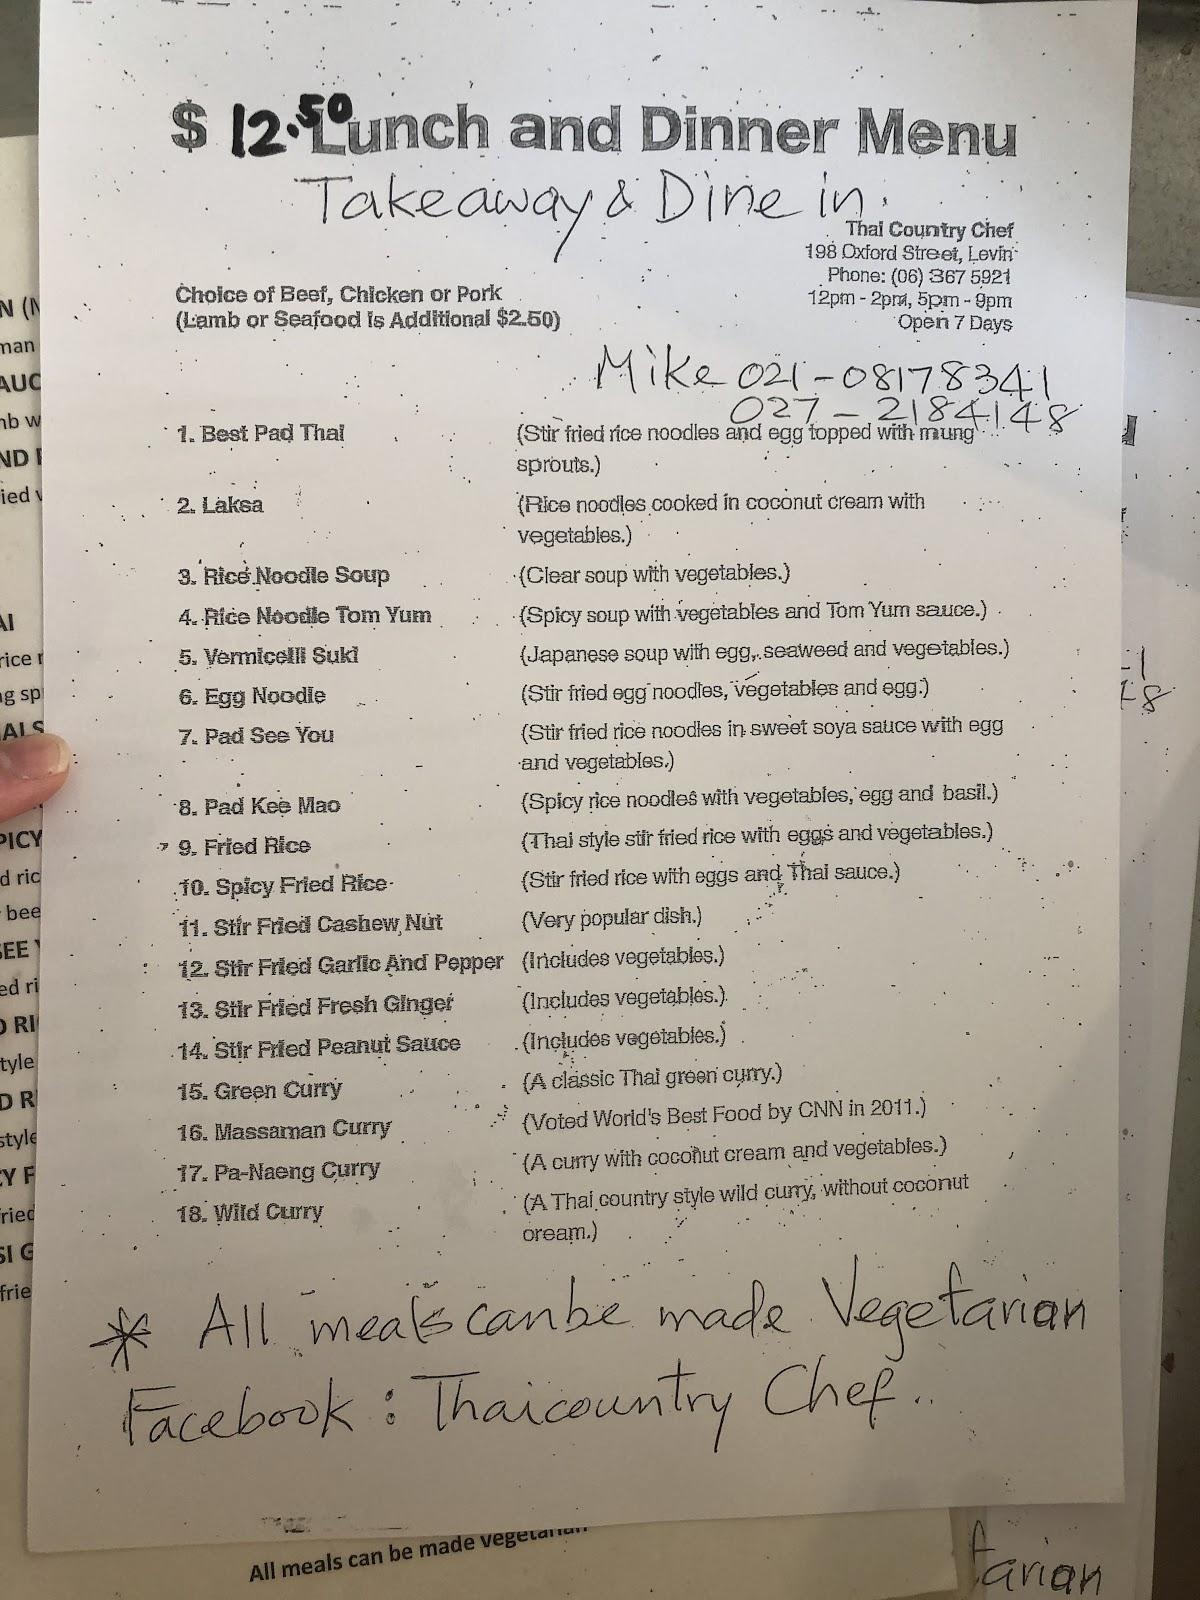 $ 12.50 Lunch and Dinner Menu
Takeaway & Dine in.
Thai Country Chef
198 Oxford Street, Levin
Phone: (06) 367 5921
12pm - 2pm, 5pm - 9pm
Open 7 Days
Choice of Beef, Chicken or Pork
(Lamb or Seafood is Additional $2.50)
Mike 021-08178341
027-2184148
1. Best Pad Thai (Stir fried rice noodles and egg topped with mung
sprouts.)
2. Laksa (Rice noodles cooked in coconut cream with
vegetables.)
3. Rice Noodle Soup (Clear soup with vegetables.)
4. Rice Noodle Tom Yum (Spicy soup with vegetables and Tom Yum sauce.)
5. Vermicelli Suki (Japanese soup with egg, seaweed and vegetables.)
6. Egg Noodle (Stir fried egg noodles, vegetables and egg.)
7. Pad See You (Stir fried rice noodles in sweet soya sauce with egg
and vegetables.)
8. Pad Kee Mao (Spicy rice noodles with vegetables, egg and basil.)
9. Fried Rice (Thai style stir fried rice with eggs and vegetables.)
10. Spicy Fried Rice (Stir fried rice with eggs and Thai sauce.)
11. Stir Fried Cashew Nut (Very popular dish.)
12. Stir Fried Garlic And Pepper (Includes vegetables.)
13. Stir Fried Fresh Ginger (Includes vegetables.)
14. Stir Fried Peanut Sauce (Includes vegetables.)
15. Green Curry (A classic Thai green curry.)
16. Massaman Curry (Voted World's Best Food by CNN in 2011.)
17. Pa-Naeng Curry (A curry with coconut cream and vegetables.)
18. Wild Curry (A Thai country style wild curry, without coconut
cream.)
* All meals can be made Vegetarian
Facebook : Thaicountry Chef..
All meals can be made vegetarian